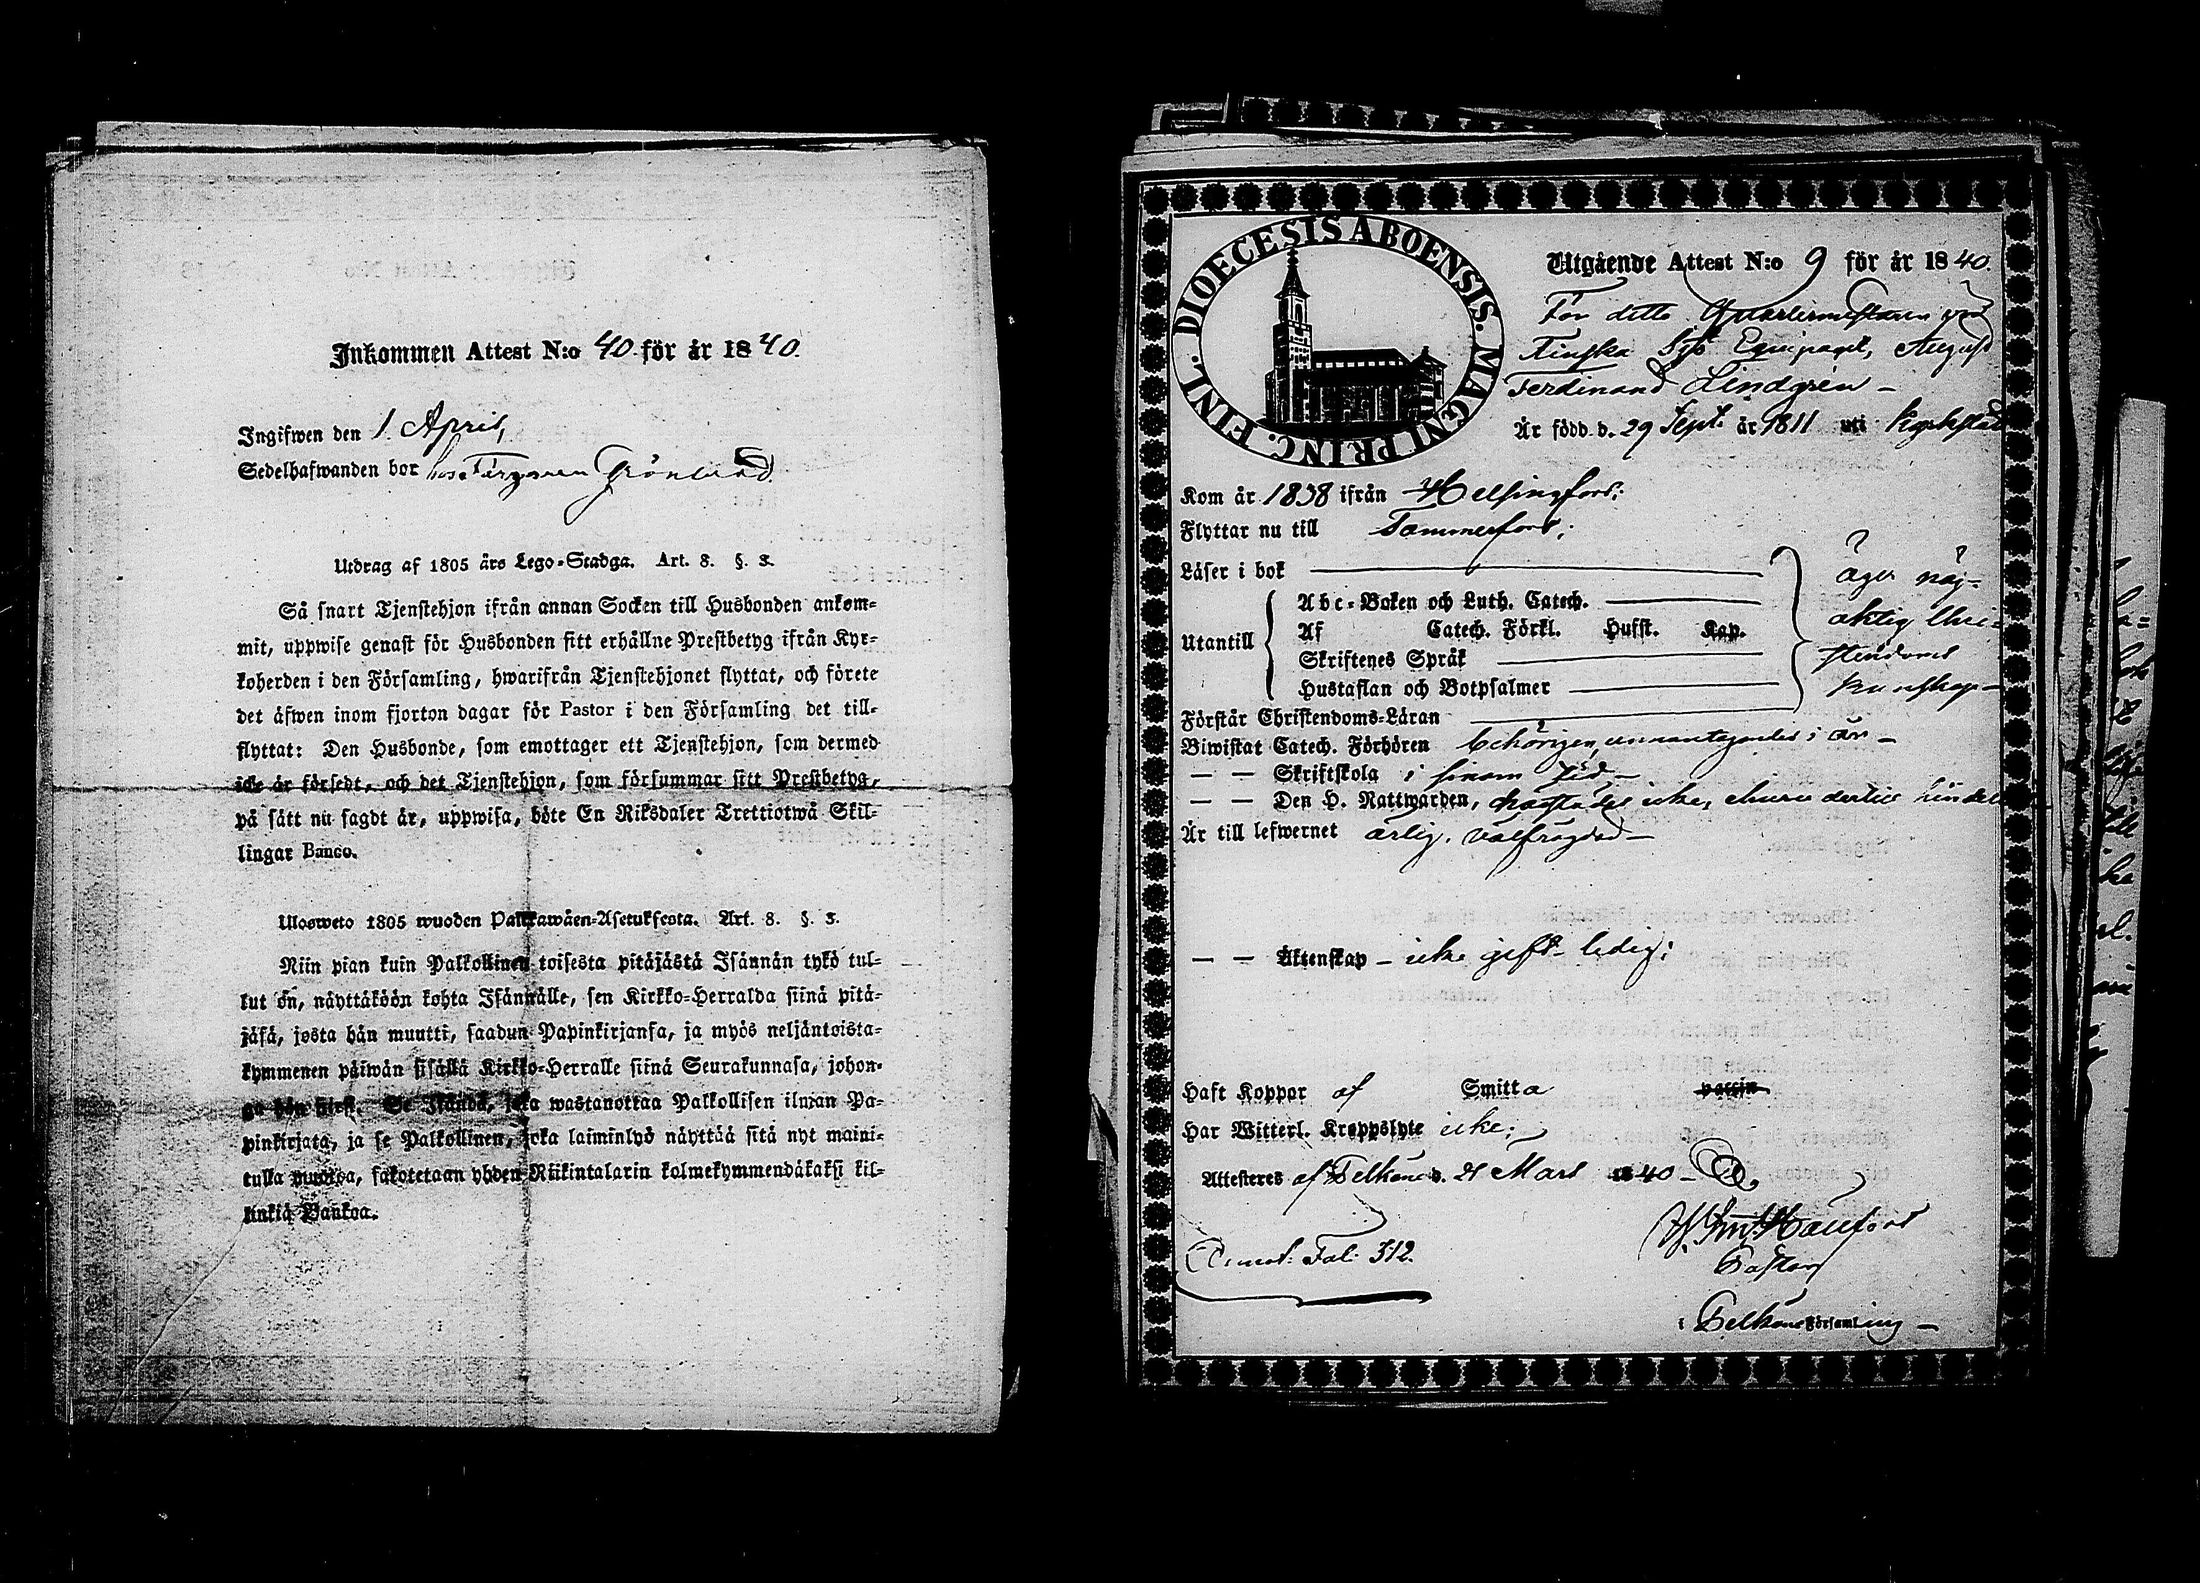 Inkommen Attest N:o 40 för år 1840.
Ingifwen den 1. April,
Sedelhafwanden bor hos Färgaren Grönlund
Utdrag af 1805 års Lego-Stadga. Art. 8. §. 3.
Så snart Tjenstehjon ifrån annan Socken till Husbonden ankom-
mit, uppwise genast för Husbonden sitt erhållne Prestbetyg ifrån Kyr-
koherden i den Församling, hwarifrån Tjenstehjonet flyttat, och förete
det äfwen inom fjorton dagar för Pastor i den Församling det till-
flyttat: Den Husbonde, som emottager ett Tjenstehjon, som dermed
icke är försedt, och det Tjenstehjon, som försummar sitt Prestbetyg,
på sätt nu sagdt är, uppwisa, böte En Riksdaler Trettiotwå Skil-
lingar Banco.
Ulosweto 1805 wuoden Palkkawäen-Asetuksesta. Art. 8. §. 3.
Niin pian kuin Palkollinen toisesta pitäjästä Isännän tykö tul-
lut on, näyttäköön kohta Isännälle, sen Kirkko-Herralda siinä pitä-
jäsä, josta hän muutti, saadun Papinkirjansa, ja myös neljäntoista-
kymmenen päiwän sisällä Kirkko-Herralle siinä Seurakunnasa, johon-
ga hän siirsi. Se Isändä, joka wastanottaa Palkollisen ilman Pa-
pinkirjata, ja se Palkollinen, joka laiminlyö näyttää sitä nyt maini-
tulla muotoa, sakotetaan yhden Riikintalarin kolmekymmendäkaksi kil-
linkiä Bankoa.
DIOECESIS ABOENSIS. MAGNI PRINC. FINL.
Utgående Attest N:o 9 för år 1840.
För detta Quartermästaren wid
Finska Sjö Equipaget, August
Ferdinand Lindgrén –
Är född d. 29 Sept. år 1811 uti
Kom år 1838 ifrån Helsingfors;
Flyttar nu till Tammerfors;
Läser i bok
Utantill
Abc-Boken och Luth. Catech.
Af Catech. Förkl. Husst. Kap.
Skriftenes Språk
Hustaflan och Botpsalmer
äger nöj-
aktig Chri-
stendoms
kunskap –
Förstår Christendoms-Läran
Biwistat Catech. Förhören behörigen, unnantagandes i år –
— — Skriftskola i sinom tid –
— — Den H. Nattwarden, icke, dertill
Är till lefwernet ärlig, välfrägdad –
— — Äktenskap – icke gift – ledig;
Haft Koppor af Smitta
Har Witterl. Kroppslyte icke;
Attesteres af Pelkäne d. 21 Mars 1840 –
Pastor
i Pelkäne Församling –
Fol: 312.